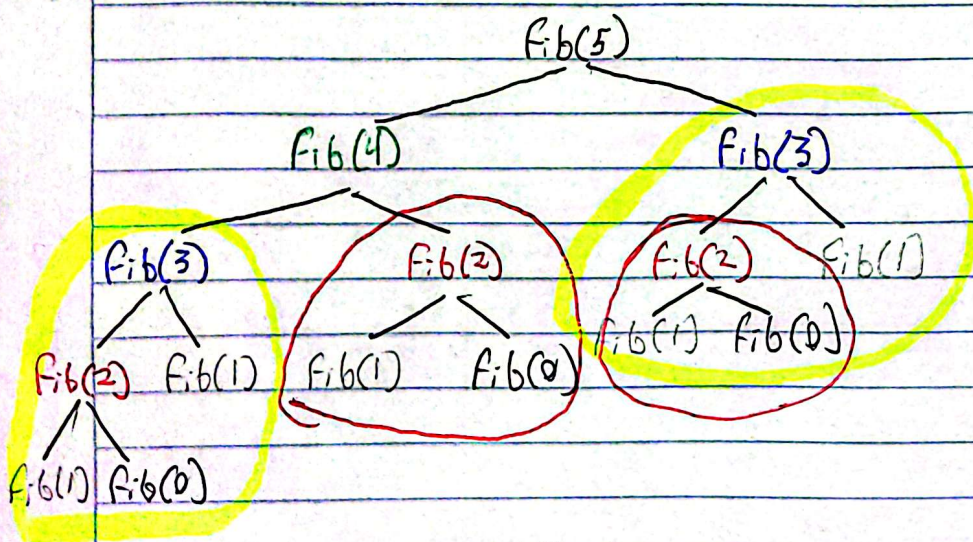 fib(5)
fib(4) fib(3)
fib(3) fib(2) fib(2) fib(1)
fib(1) fib(0)
fib(2) fib(1) fib(1) fib(0)
fib(1) fib(0)